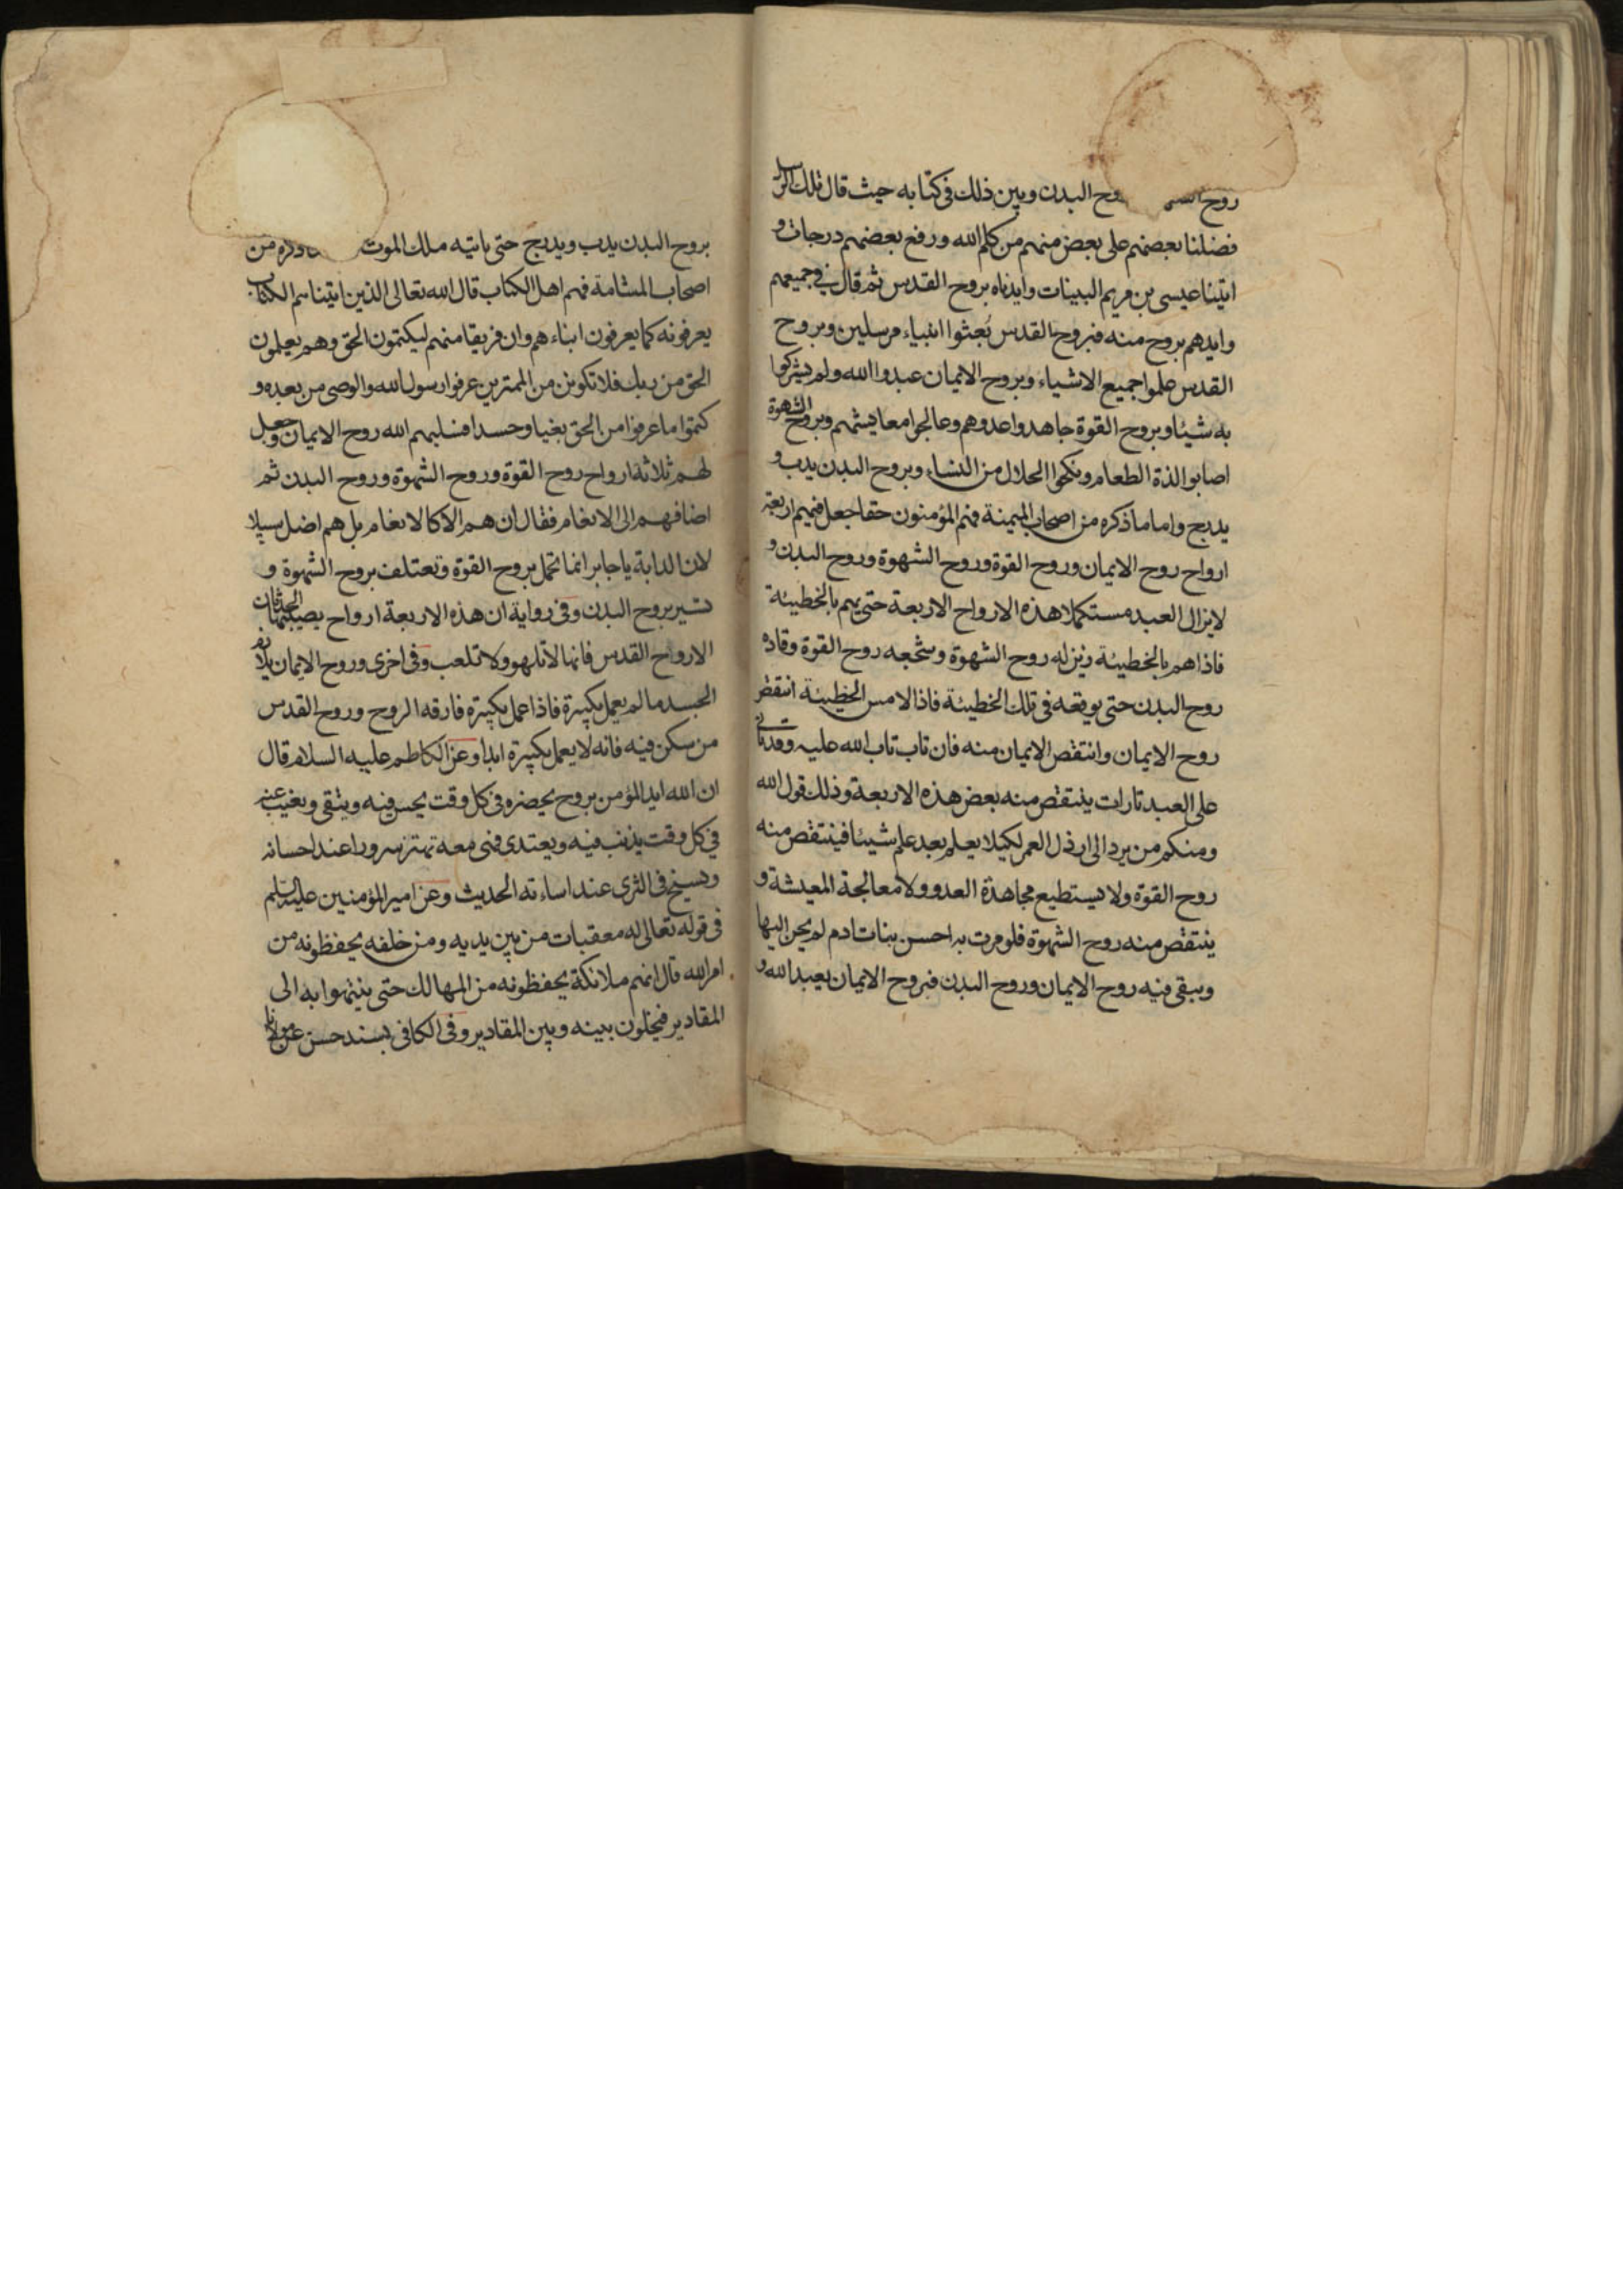 روح وح البدن وبين ذلك في كتابه حيث قال تلك الرسل
فضلنا بعضهم على بعض منهم من كلم الله ورفع بعضهم درجات و
اتينا عيسى بن مريم البينات وايدناه بروح القدس ثم قال في جميعهم
وايدهم بروح منه فبروح القدس بُعثوا انبياء مرسلين وبروح
القدس علموا جميع الاشياء وبروح الايمان عبدوا الله ولم يشركوا
به شيئا وبروح القوة جاهدوا عدوهم وعالجوا معايشهم وبروح الشهوة
اصابوا لذة الطعام ونكحوا الحلال من النساء وبروح البدن يدب و
يدرج واما ما ذكره من اصحاب الميمنة فهم المؤمنون حقا جعل فيهم اربعة
ارواح روح الايمان وروح القوة وروح الشهوة وروح البدن و
لايزال العبد مستكملا هذه الارواح الاربعة حتى يهم بالخطيئة
فاذا هم بالخطيئة زين له روح الشهوة وشجعه روح القوة وقاده
روح البدن حتى يوقعه في تلك الخطيئة فاذا لامس الخطيئة انتقص
روح الايمان وانتقص الايمان منه فان تاب تاب الله عليه وقد تاتي
على العبد تارات ينتقص منه بعض هذه الاربعة وذلك قول الله
ومنكم من يرد الى ارذل العمر لكيلا يعلم بعد علم شيئا فينتقص منه
روح القوة ولا يستطيع مجاهدة العدو ولا معالجة المعيشة و
ينتقص منه روح الشهوة فلو مرت به احسن بنات ادم لم يحن اليها
ويبقى فيه روح الايمان وروح البدن فبروح الايمان يعبد الله و
بروح البدن يدب ويدرج حتى ياتيه ملك الموت من
اصحاب المشامة فهم اهل الكتاب قال الله تعالى الذين اتيناهم الكتاب
يعرفونه كما يعرفون ابناءهم وان فريقا منهم ليكتمون الحق وهم يعلمون
الحق من ربك فلا تكونن من الممترين عرفوا رسول الله والوصي من بعده و
كتموا ما عرفوا من الحق بغيا وحسدا فسلبهم الله روح الايمان وجعل
لهم ثلاثة ارواح روح القوة وروح الشهوة وروح البدن ثم
اضافهم الى الانعام فقال ان هم الا كالانعام بل هم اضل سبيلا
لان الدابة ياجابر انما تحمل بروح القوة وتعتلف بروح الشهوة و
تسير بروح البدن وفي رواية ان هذه الاربعة ارواح يصيبها الحدثان
الا روح القدس فانها لا تلهو ولا تلعب وفي اخرى وروح الايمان يلازم
الجسد ما لم يعمل بكبيرة فاذا عمل بكبيرة فارقه الروح وروح القدس
من سكن فيه فانه لا يعمل بكبيرة ابدا وعن الكاظم عليه السلام قال
ان الله ايد المؤمن بروح يحضره في كل وقت يحسن فيه ويتقى ويغيب عنه
في كل وقت يذنب فيه ويعتدى فهى معه تهتز سرورا عند احسانه
وتسيخ في الثرى عند اساءته الحديث وعن امير المؤمنين عليه السلم
في قوله تعالى له معقبات من بين يديه ومن خلفه يحفظونه من
امر الله قال انهم ملائكة يحفظونه من المهالك حتى ينتهوا به الى
المقادير فيخلون بينه وبين المقادير وفي الكافي بسند حسن عن مولانا